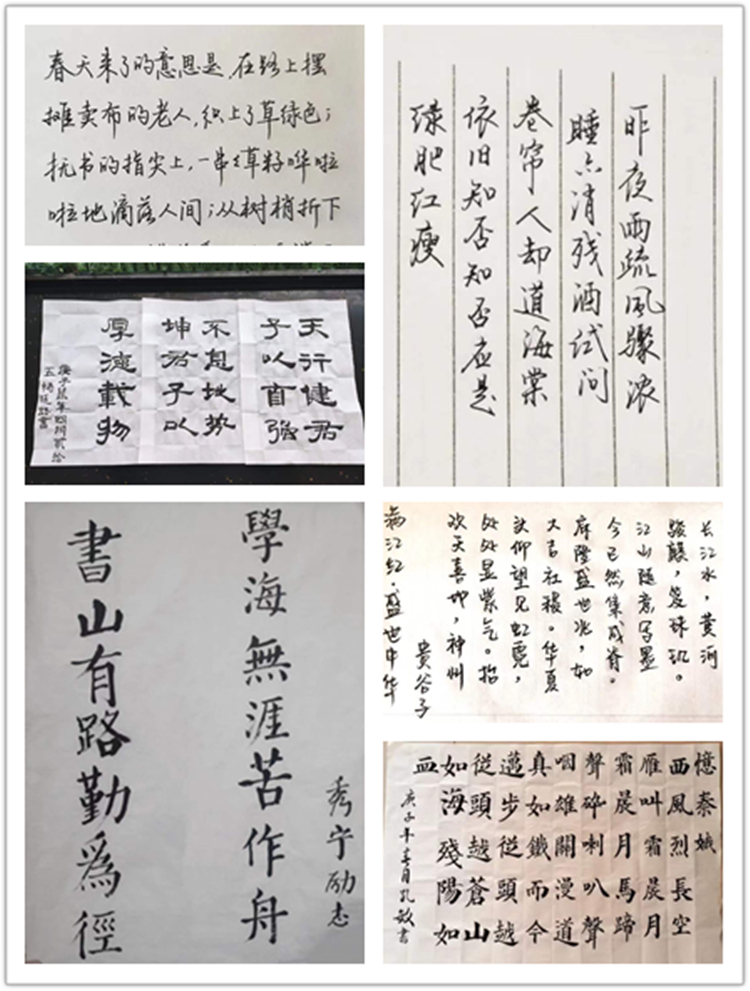 春天来了的意思是,在路上摆
摊卖布的老人,织上了草绿色;
抚书的指尖上,一串々草籽哗啦
啦地滴落人间;从树梢折下
昨夜雨疏風驟浓
睡不消残酒试问
卷帘人却道海棠
依旧知否知否应是
绿肥红瘦
天行健君
子以自強
不息地势
坤君子以
厚德載物
庚子鼠年四月贰拾
長江水,黄河
江山随意写墨
今已然集成脊。
府隆盛世兆,如
大吉社稷。华夏
仰望见虹霓,
处处显紫气。抬
欢天喜地,神州
满江红·盛世中华
贵谷子
學海無涯苦作舟
書山有路勤為徑
秀宁励志
憶秦娥
西風烈長空
雁叫霜晨月
霜晨月馬蹄
聲碎喇叭聲
咽雄關漫道
真如鐵而今
邁步從頭越
從頭越蒼山
如海殘陽如
血
庚子年春月孔敏書